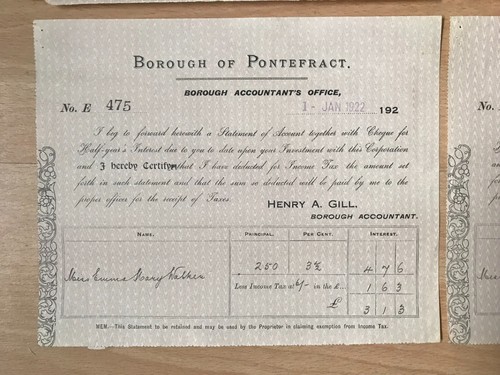 BOROUGH OF PONTEFRACT.
BOROUGH ACCOUNTANT'S OFFICE,
No. E 475
1 - JAN 1922 192
I beg to forward herewith a Statement of Account together with Cheque for
Half-year's Interest due to you to date upon your Investment with this Corporation
and I hereby Certify that I have deducted for Income Tax the amount set
forth in such statement and that the sum so deducted will be paid by me to the
proper officer for the receipt of Taxes.
HENRY A. GILL,
BOROUGH ACCOUNTANT.
NAME. PRINCIPAL. PER CENT. INTEREST.
Miss Emma Walker 250 3½ 4 7 6
Less Income Tax at 6/- in the £... 1 6 3
£ 3 1 3
MEM.—This Statement to be retained and may be used by the Proprietor in claiming exemption from Income Tax.
No.